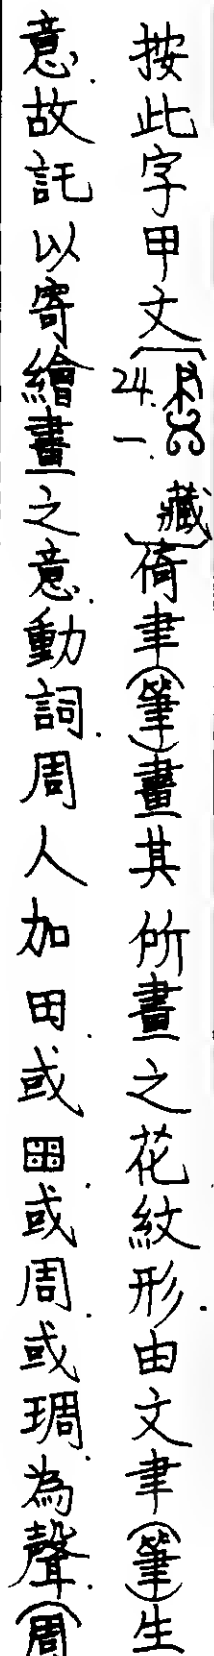 按此字甲文〔藏24.一.〕倚聿(筆)畫其所畫之花紋形.由文聿(筆)生
意.故託以寄繪畫之意.動詞.周人加田.或𤰔.或周.或琱.為聲.(周